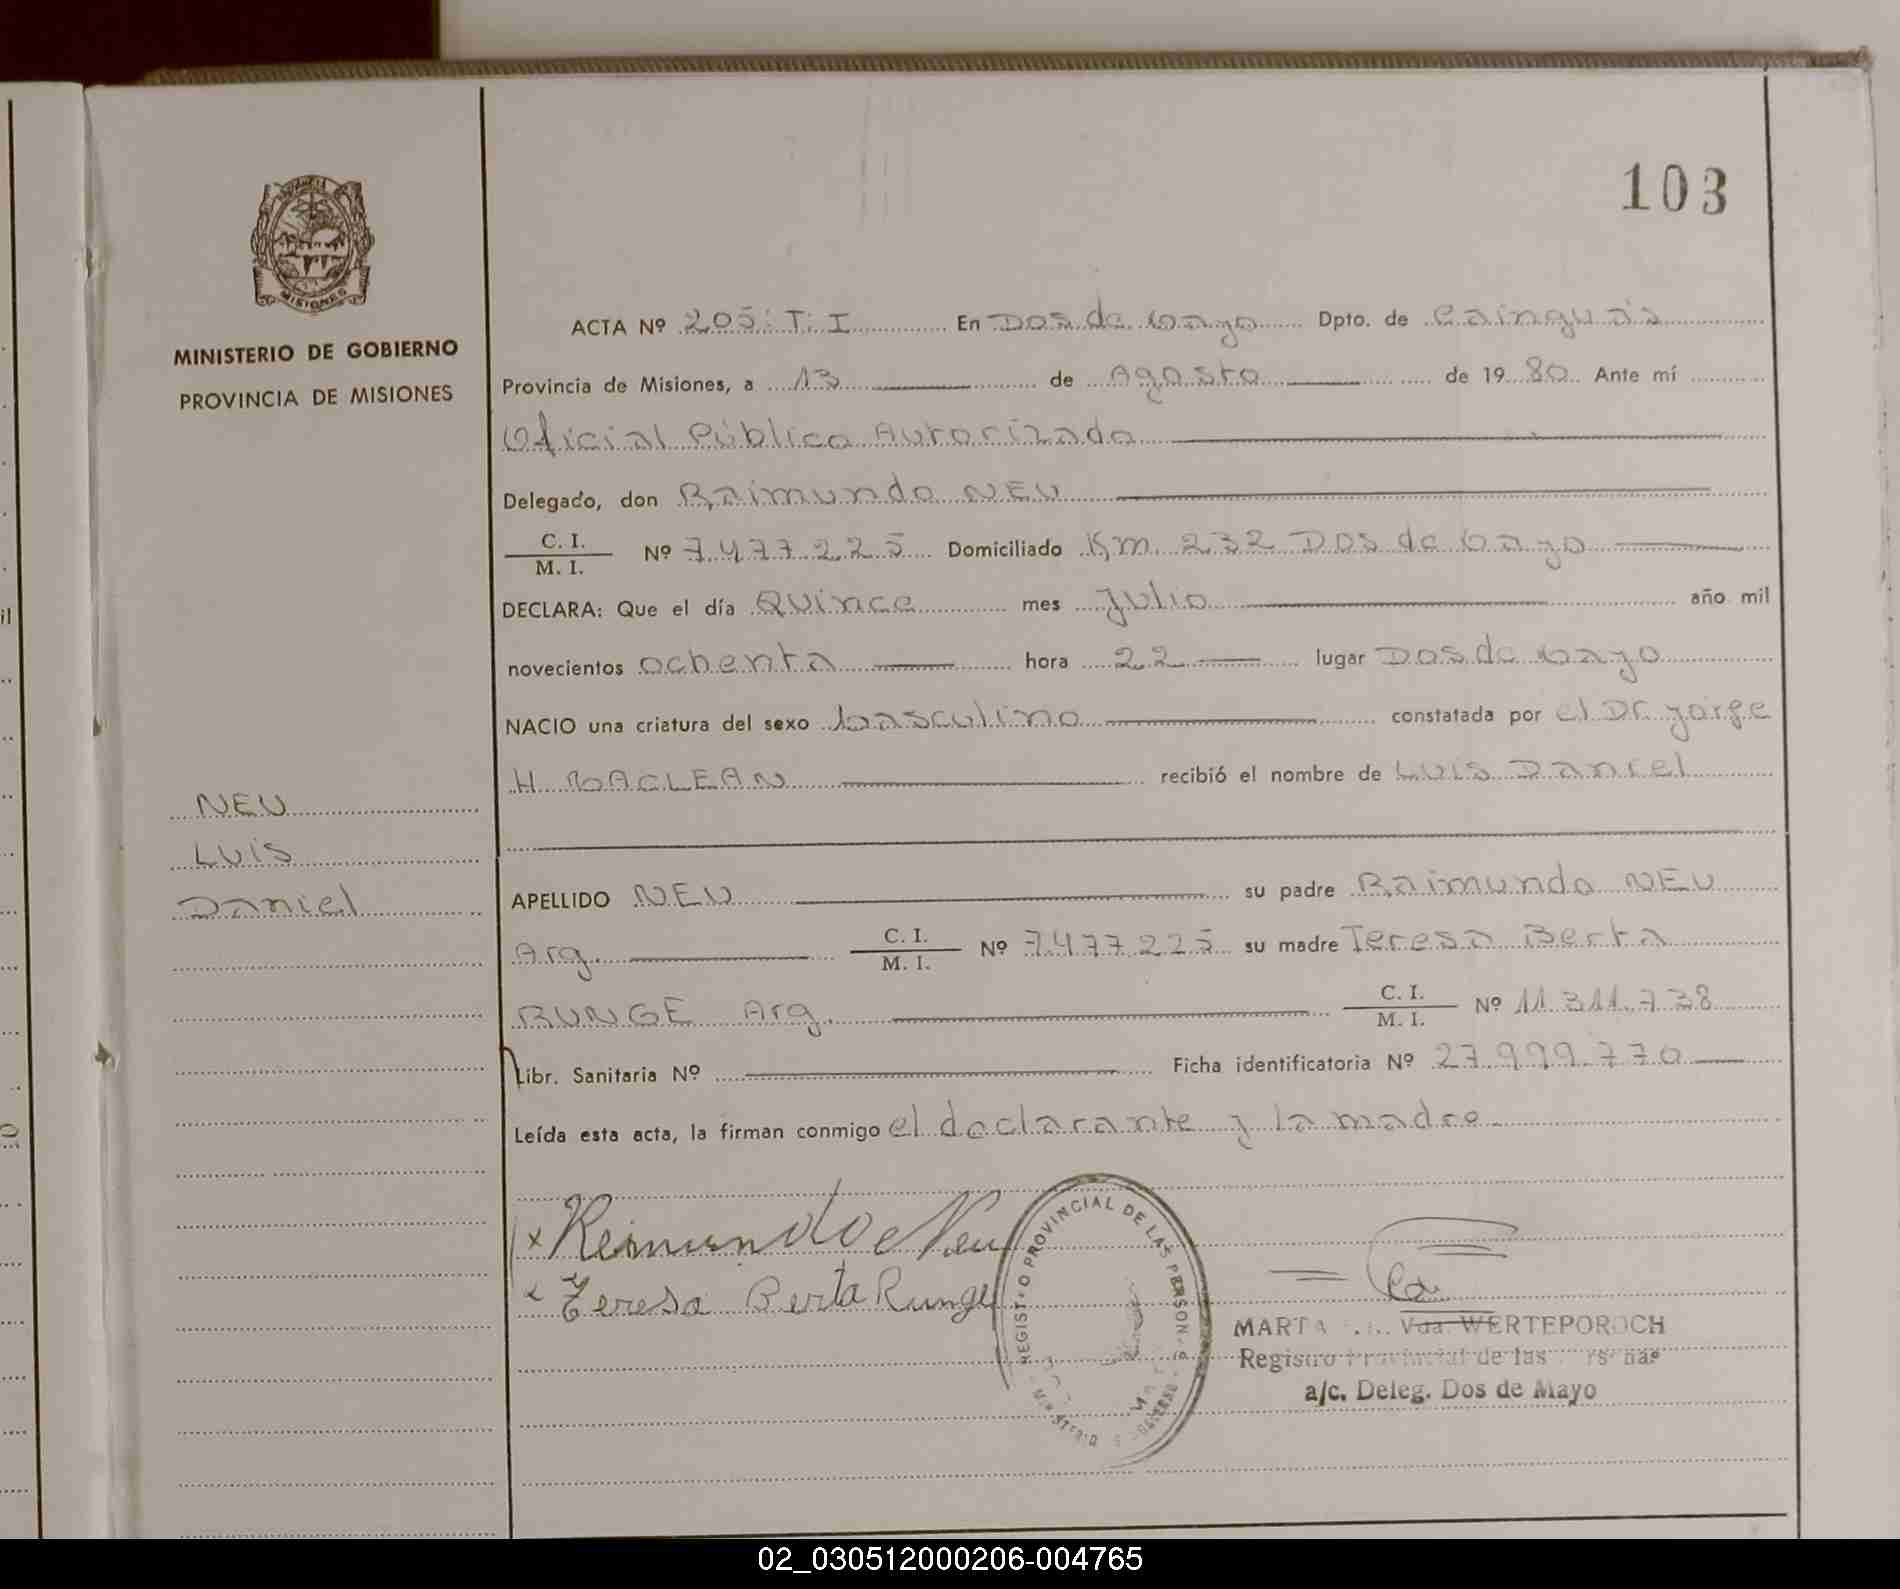 103
MISIONES
MINISTERIO DE GOBIERNO
PROVINCIA DE MISIONES
NEU
LUIS
Daniel
ACTA Nº 205: T: I En Dos de Mayo Dpto. de Cainguás
Provincia de Misiones, a 13 de Agosto de 1980 Ante mí
Oficial Público Autorizado
Delegado, don Raimundo NEU
C. I.
M. I. Nº 7.477.225 Domiciliado Km. 232 Dos de Mayo
DECLARA: Que el día Quince mes Julio año mil
novecientos ochenta hora 22 lugar Dos de Mayo
NACIO una criatura del sexo Masculino constatada por el Dr. Jorge
H. MACLEAN recibió el nombre de LUIS Daniel
APELLIDO NEU su padre Raimundo NEU
Arg. C. I.
M. I. Nº 7.477.225 su madre Teresa Berta
RUNGE Arg. C. I.
M. I. Nº 11.311.738
Libr. Sanitaria Nº Ficha identificatoria Nº 27.999.770
Leída esta acta, la firman conmigo el declarante y la madre
x Reimundo Neu
x Teresa Berta Runge
REGISTRO PROVINCIAL DE LAS PERSON
MARTA Vda. WERTEPOROCH
Registro Provincial de las Personas
a/c. Deleg. Dos de Mayo
02_030512000206-004765